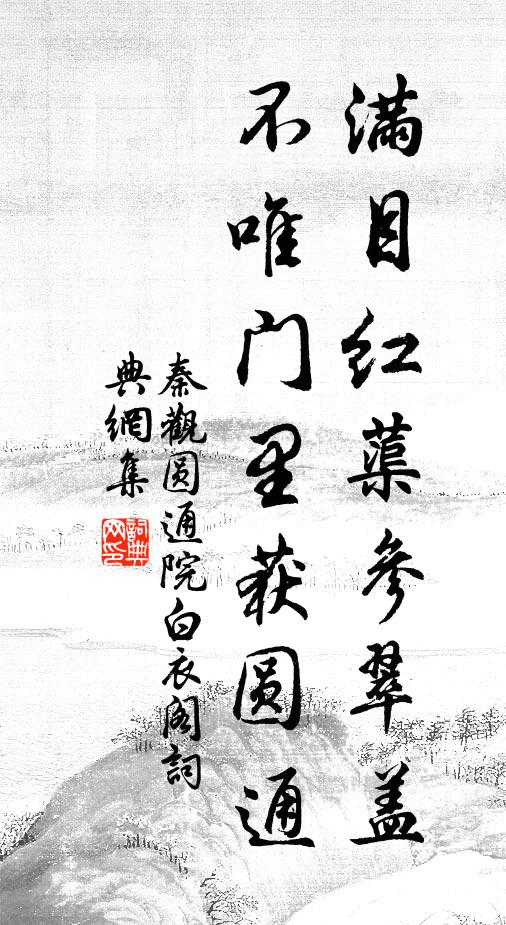 满目红蕖参翠盖
不唯门里获圆通
秦觀圆通院白衣阁詞
典網集
詞典网印